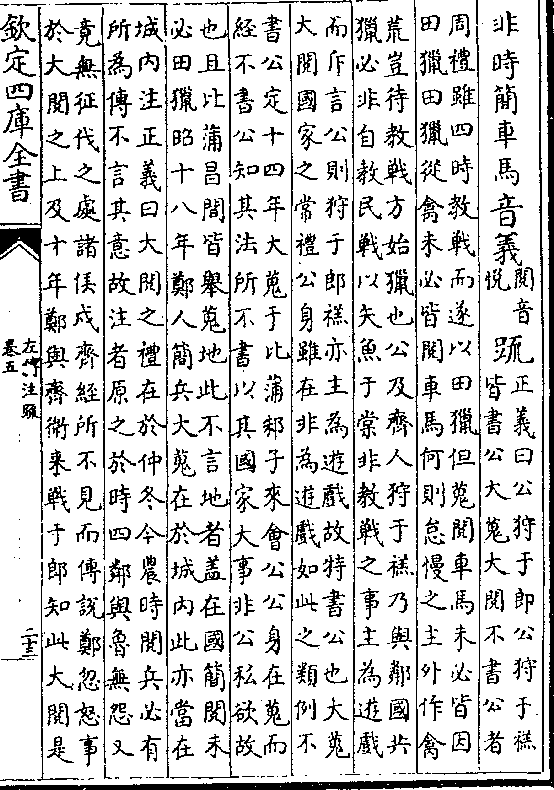 非時簡車馬音義閱音悅疏正義曰公狩于郎公狩于禚
皆書公大蒐大閱不書公者
周禮雖四時教戰而遂以田獵但蒐閱車馬未必皆因
田獵田獵從禽未必皆閱車馬何則怠慢之主外作禽
荒豈待教戰方始獵也公及齊人狩于禚乃與鄰國共
獵必非自教民戰以矢魚于棠非教戰之事主為遊戲
而斥言公則狩于郎禚亦主為遊戲故特書公也大蒐
大閱國家之常禮公身雖在非為遊戲如此之類例不
書公定十四年大蒐于比蒲邾子來會公公身在蒐而
經不書公知其法所不書以其國家大事非公私欲故
也且比蒲昌間皆舉蒐地此不言地者蓋在國簡閱未
必田獵昭十八年鄭人簡兵大蒐在於城內此亦當在
城內注正義曰大閱之禮在於仲冬今農時閱兵必有
所為傳不言其意故注者原之於時四鄰與魯無怨又
竟無征伐之處諸侯戍齊經所不見而傳說鄭忽怒事
於大閱之上及十年鄭與齊衛來戰于郎知此大閱是
欽定四庫全書
左傳注疏
卷五
二十三